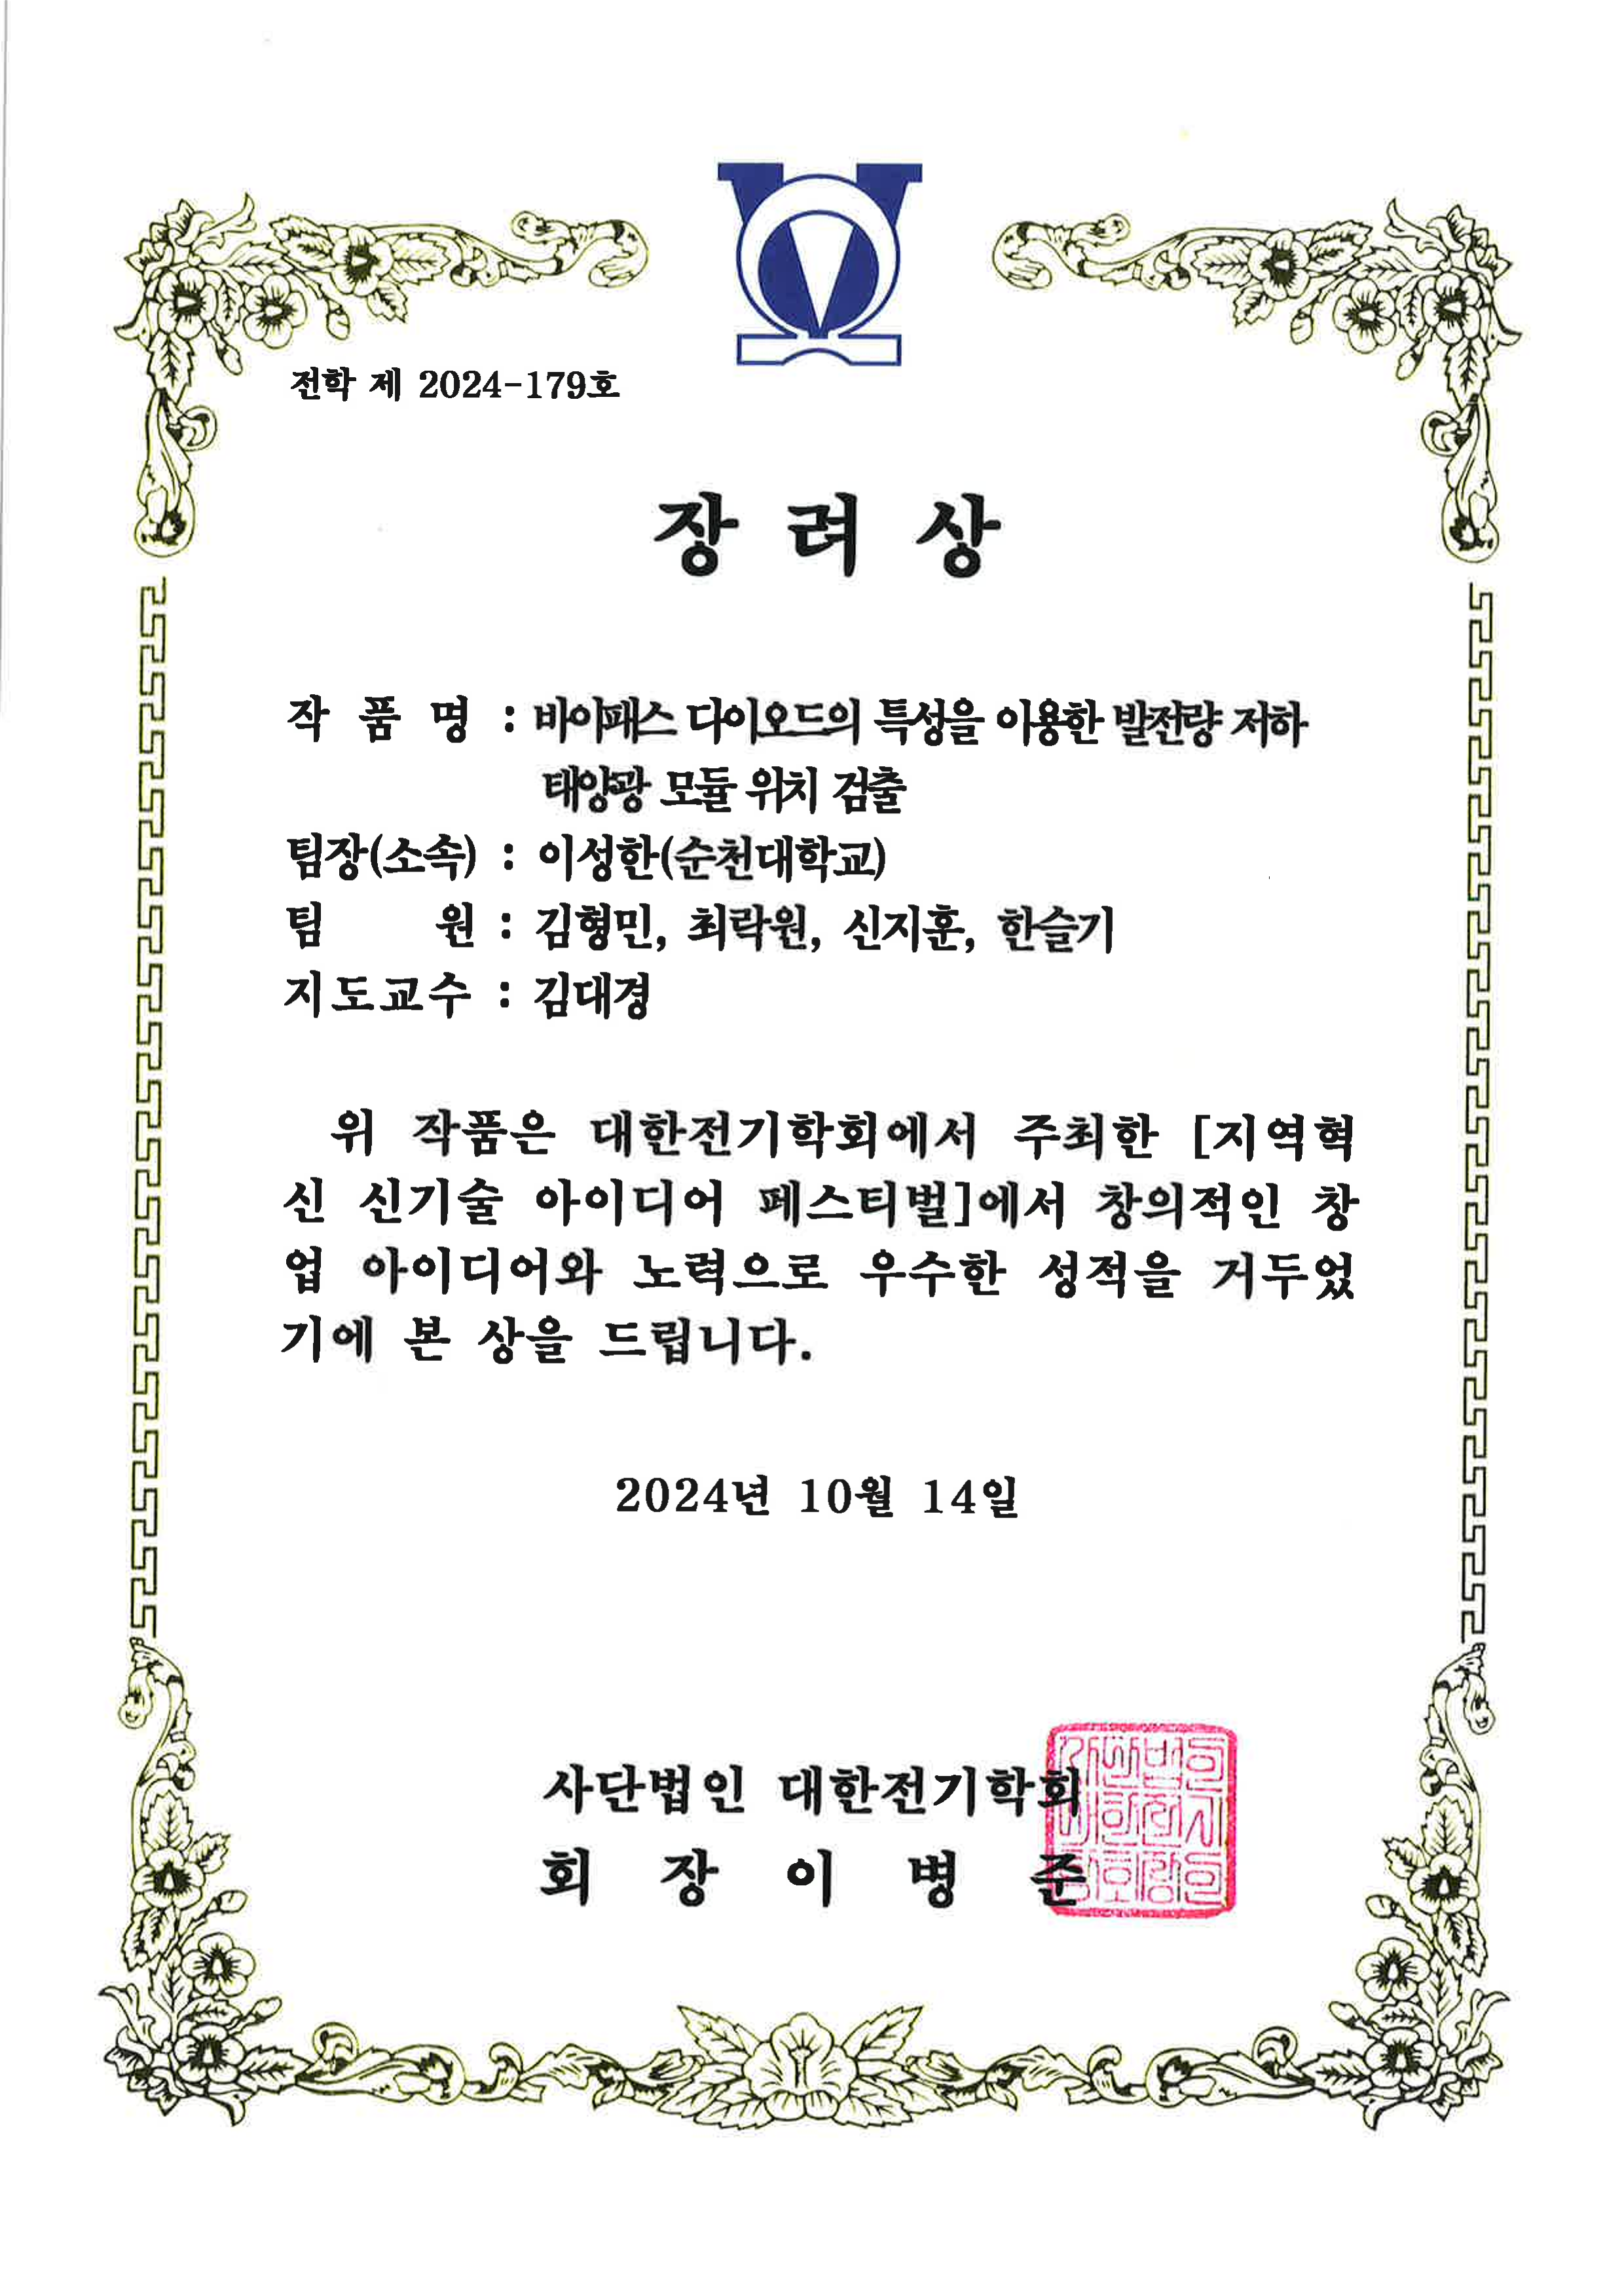 전학 제 2024-179호
장 려 상
작 품 명 : 바이패스 다이오드의 특성을 이용한 발전량 저하
태양광 모듈 위치 검출
팀장(소속) : 이성한(순천대학교)
팀 원 : 김형민, 최락원, 신지훈, 한슬기
지도교수 : 김대경
위 작품은 대한전기학회에서 주최한 [지역혁
신 신기술 아이디어 페스티벌]에서 창의적인 창
업 아이디어와 노력으로 우수한 성적을 거두었
기에 본 상을 드립니다.
2024년 10월 14일
사단법인 대한전기학회
회 장 이 병 준